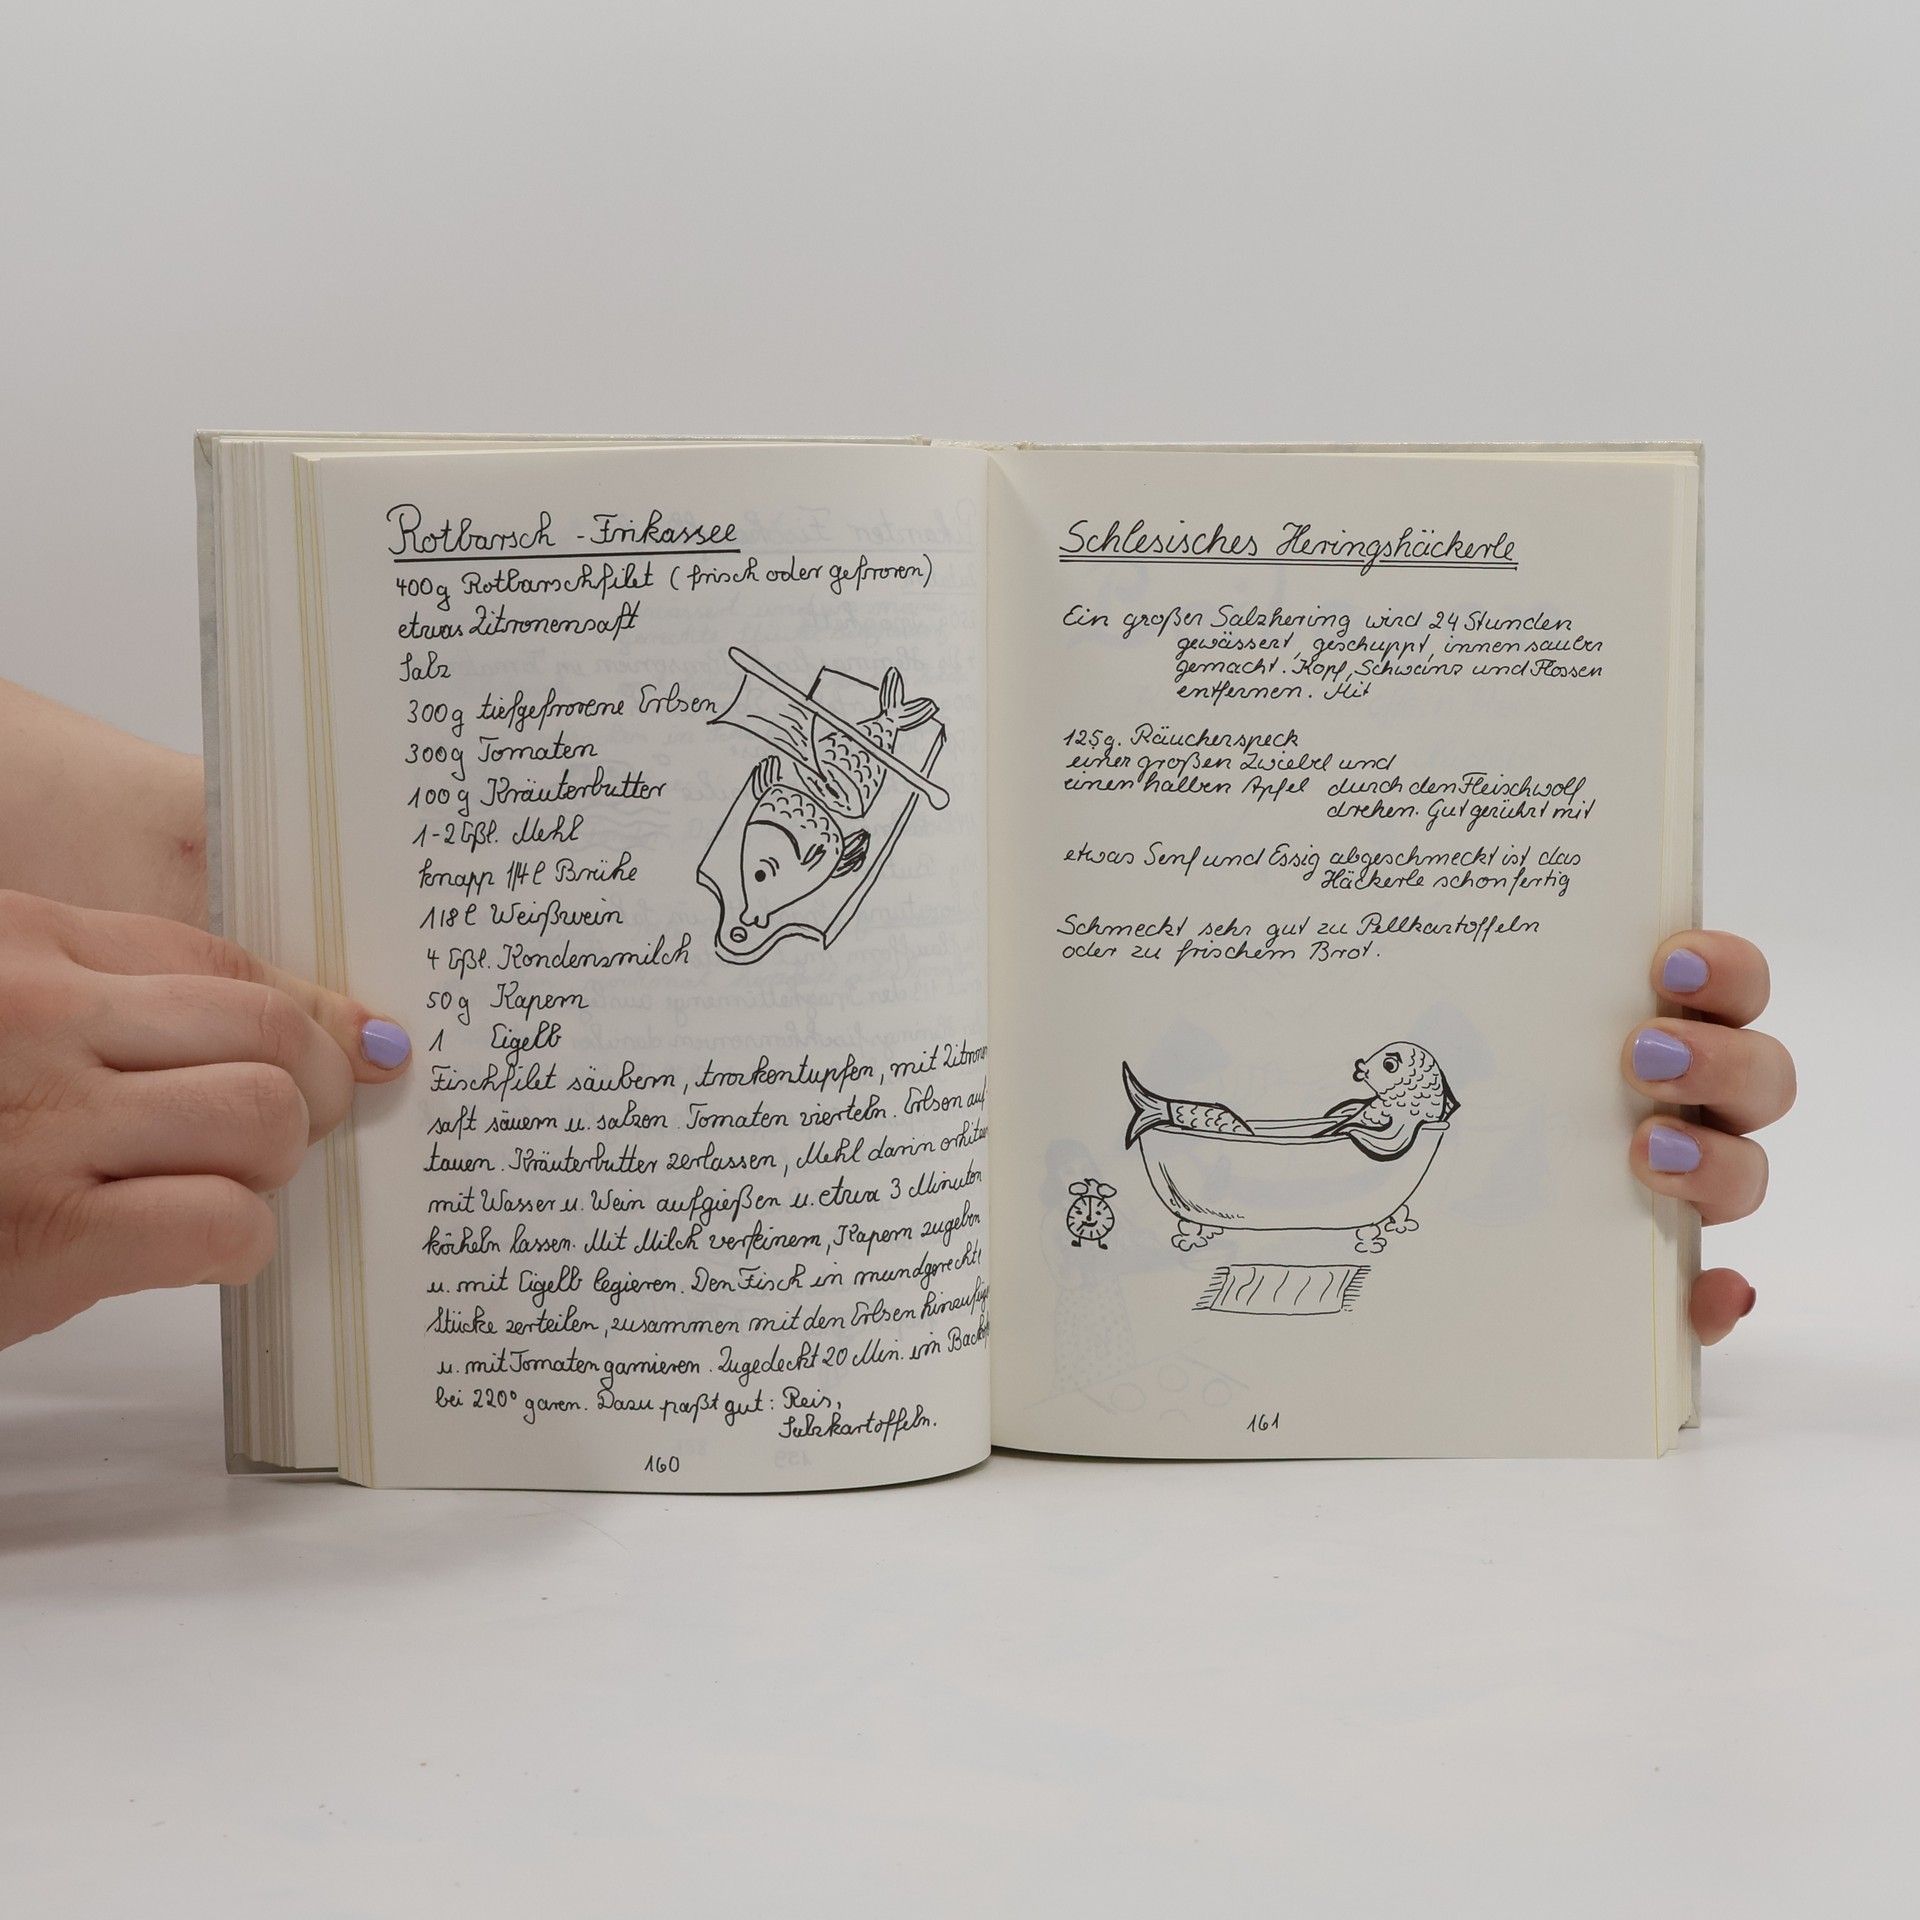 Rotbarsch - Frikassee
400g Rotbarschfilet (frisch oder gefroren)
etwas Zitronensaft
Salz
300g tiefgefrorene Erbsen
300g Tomaten
100g Kräuterbutter
1-2 Eßl. Mehl
knapp 1/4 l Brühe
1/8 l Weißwein
4 Eßl. Kondensmilch
50g Kapern
1 Eigelb
Fischfilet säubern, trockentupfen, mit Zitronen
saft säuern u. salzen. Tomaten vierteln. Erbsen auf
tauen. Kräuterbutter zerlassen, Mehl darin erhitzen
mit Wasser u. Wein aufgießen u. etwa 3 Minuten
köcheln lassen. Mit Milch verfeinern, Kapern zugeben
u. mit Eigelb legieren. Den Fisch in mundgerechte
Stücke zerteilen, zusammen mit den Erbsen hinzufügen
u. mit Tomaten garnieren. Zugedeckt 20 Min. im Backofen
bei 220° garen. Dazu paßt gut: Reis,
Salzkartoffeln.
160
Schlesisches Heringshäckerle
Ein großer Salzhering wird 24 Stunden
gewässert, geschuppt, innen sauber
gemacht. Kopf, Schwanz und Flossen
entfernen. Mit
125g. Räucherspeck
einer großen Zwiebel und
einen halben Apfel durch den Fleischwolf
drehen. Gut gerührt mit
etwas Senf und Essig abgeschmeckt ist das
Häckerle schon fertig
Schmeckt sehr gut zu Pellkartoffeln
oder zu frischem Brot.
161